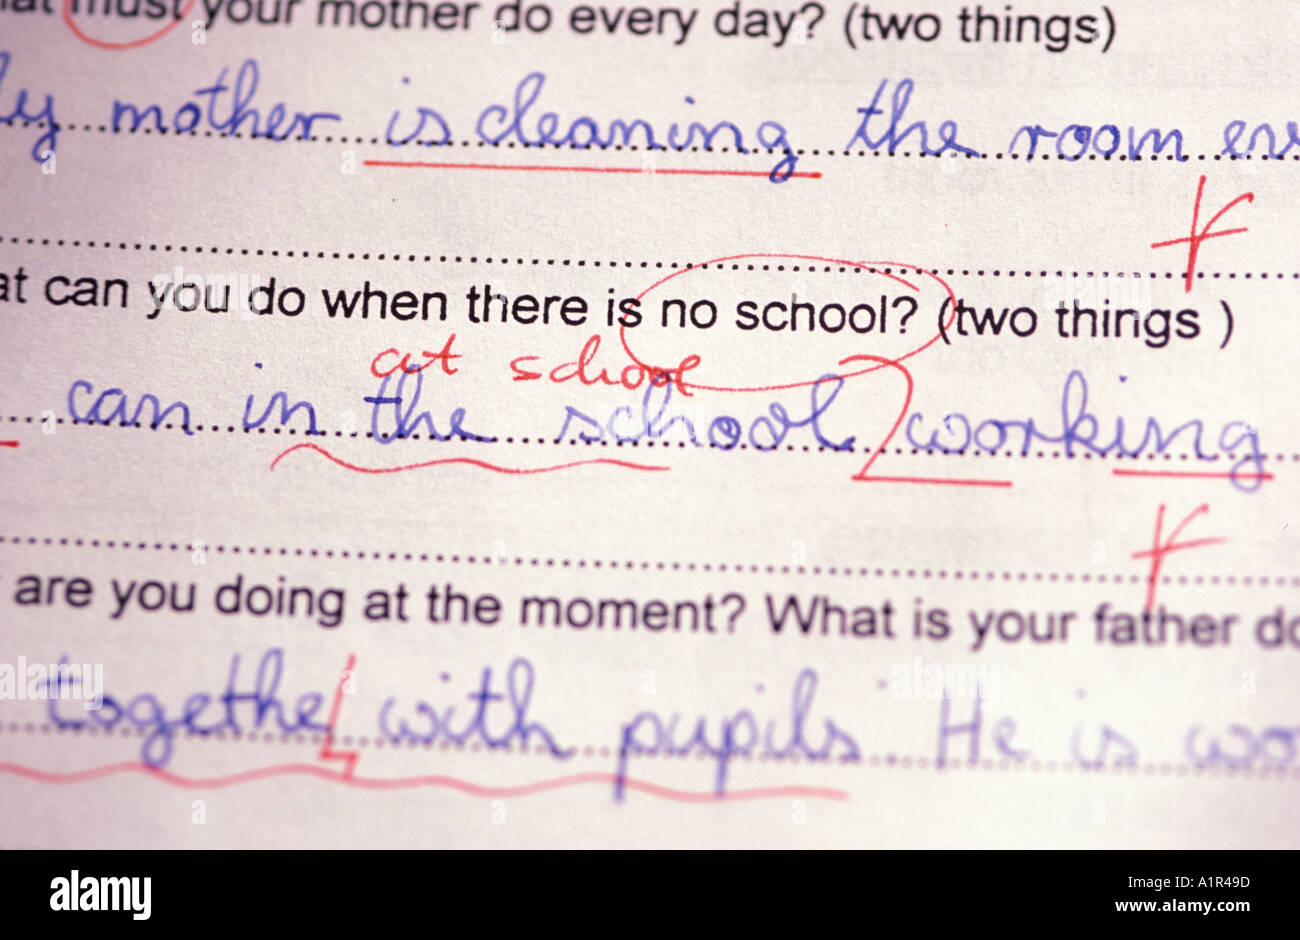 must your mother do every day? (two things)
mother is cleaning the room
can you do when there is no school? (two things )
at school
can in the school working
are you doing at the moment? What is your father
together with pupils He is
alamy
Image ID: A1R49D
www.alamy.com